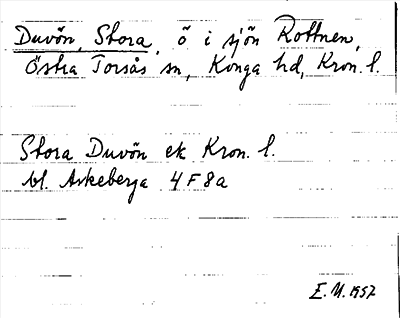 Duvön, Stora, ö i sjön Rottnen,
Östra Torsås sn, Konga hd, Kron. l.
Stora Duvön ek Kron. l.
bl. Arkeberga 4 F 8a
E.M. 1957